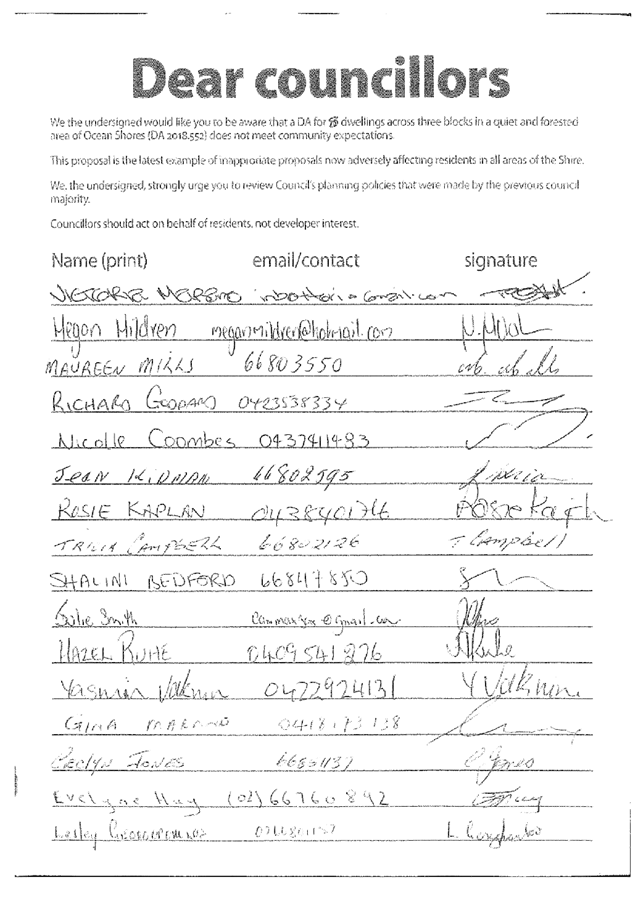 Dear councillors
We the undersigned would like you to be aware that a DA for dwellings across three blocks in a quiet and forested
area of Ocean Shores (DA 2018.552) does not meet community expectations.
This proposal is the latest example of inapproriate proposals now adversely affecting residents in all areas of the Shire.
We, the undersigned, strongly urge you to review Council's planning policies that were made by the previous council
majority.
Councillors should act on behalf of residents, not developer interest.
Name (print) email/contact signature
VICTORIA MORENO
Megan Mildren meganmildren@hotmail.com
MAUREEN MILLS 66803550
RICHARD GODDARD 0423538334
Nicolle Coombes 0437411483
JEAN KIDMAN 66802595
ROSIE KAPLAN 0438401746
TRICIA CAMPBELL 66802126 T Campbell
SHALINI BEDFORD 66847850
Julie Smith
HAZEL RUHE 0409541876
Yasmin 0422924131
GINA
Ceclyn JONES C Jones
Evelyne Huy (02) 66760892
Lesley